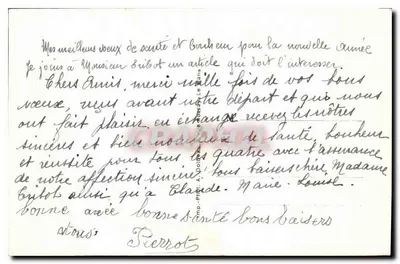 Mes meilleurs vœux de santé et bonheur pour la nouvelle année
Je joins à Monsieur Tribot un article qui doit l'intéresser
Chers Amis, merci mille fois de vos bons
vœux, reçus avant notre départ et qui nous
ont fait plaisir, en échange recevez les nôtres
sincères et biens nombreux de santé, bonheur
et réussite pour tous les quatre avec l'assurance
de notre affection sincère. Bons baisers chère Madame
Tribot ainsi qu'à Claude - Marie - Louise.
bonne année bonne santé bons baisers
Pierrot